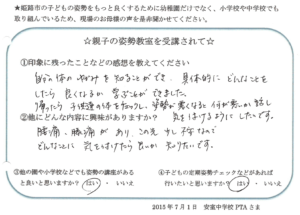 ★姫路市の子どもの姿勢をもっと良くするために幼稚園だけでなく、小学校や中学校でも
取り組んでいるため、現場のお母様の声を是非聞かせてください。
☆親子の姿勢教室を受講されて☆
①印象に残ったことなどの感想を教えてください
自分の体のゆがみを知ることができ、具体的にどんなことを
したら良くなるか 学ぶ事ができました。
帰ったら 子供達の体をチェックし、姿勢が悪くなると何が悪いか話し
気をつけるようにしたいです。
②他にどんな内容に興味がありますか？
腰痛、膝痛があり、この先 少し不安なので
どんなことに 気を付けたら良いか 知りたいです。
③他の園や小学校などでも姿勢の講座がある
と良いと思いますか？ はい ・ いいえ
④子どもの姿勢チェックなどがあれば
行いたいと思いますか？ はい ・ いいえ
2015年7月1日 安室中学校 PTAさま